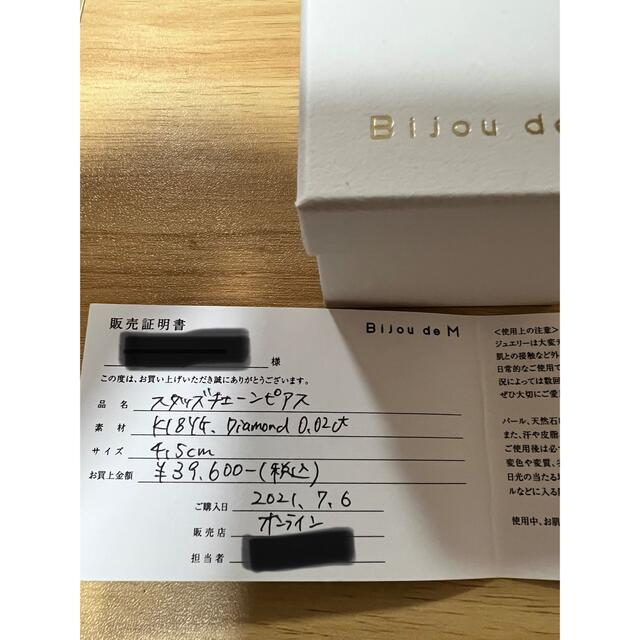 Bijou de
販売証明書
Bijou de M
様
この度は、お買い上げいただき誠にありがとうございます。
品 名 スタッズチェーンピアス
素 材 K18YG. Diamond 0.02ct
サイズ 4.5cm
お買上金額 ¥39.600-(税込)
ご購入日 2021. 7. 6
販売店 オンライン
担当者
<使用上の注意>
ジュエリーは大変デ
肌との接触など外
日常的なご使用で
況によっては数回
ぜひ大切にご愛
パール、天然石
また、汗や皮脂
ご使用後は必
変色や変質、
日光の当たる場
ルなどに入る
使用中、お肌